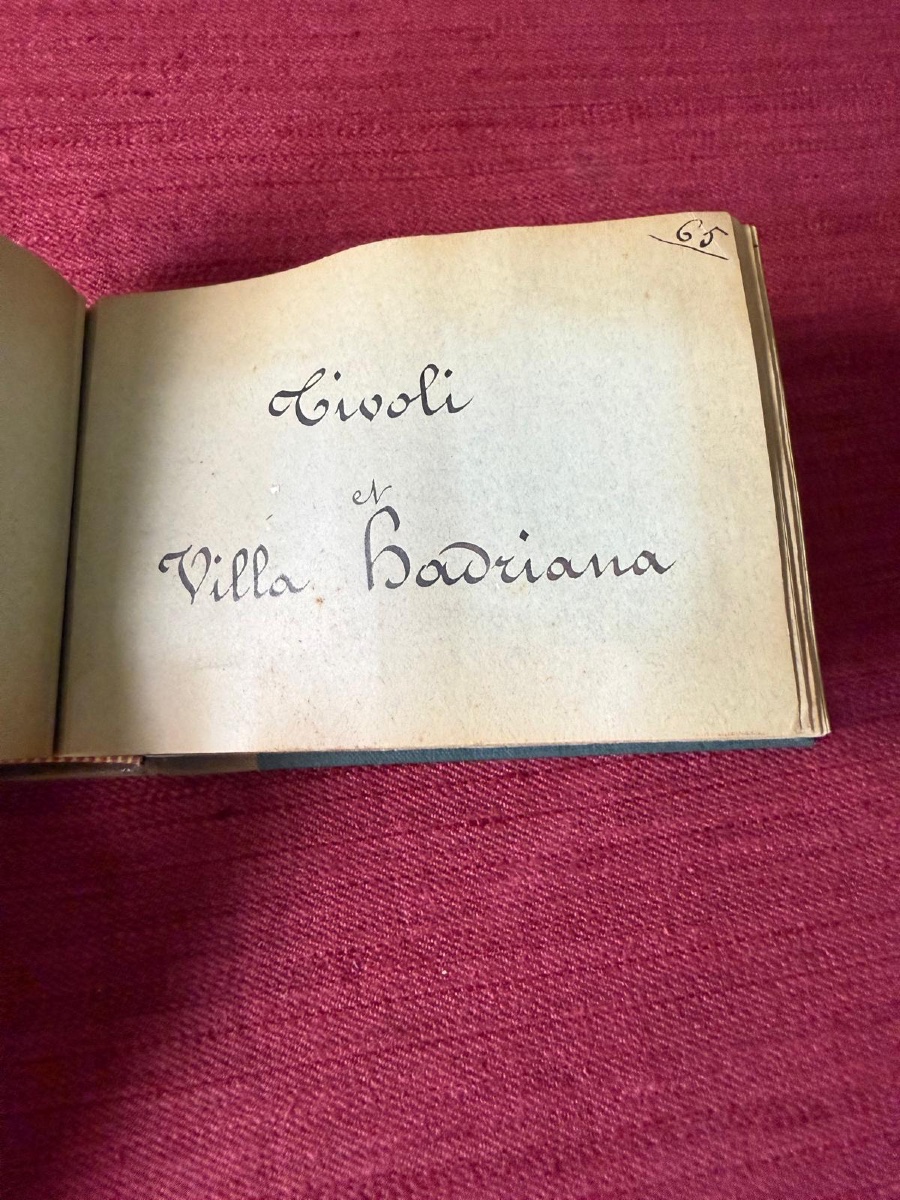 65
Tivoli
et
Villa Hadriana